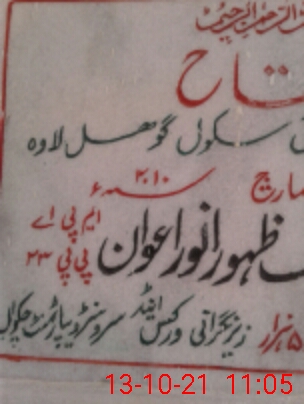 الرحمٰن الرحیم
تاح
سکول گوھل لاوہ
مارچ ۲۰۱۰ء
ظہور انور اعوان ایم پی اے پی پی ۲۳
ہزار زیرنگرانی ورکس اینڈ سروسز ڈیپارٹمنٹ چکوال
13-10-21 11:05